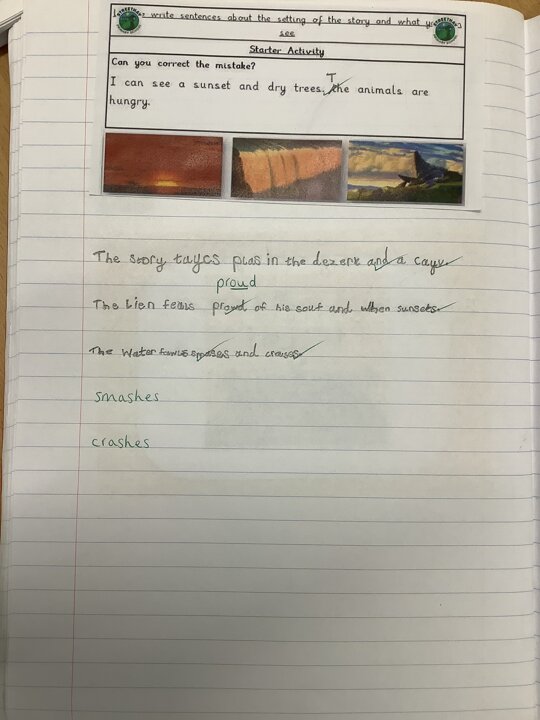 write sentences about the setting of the story and what
see
Starter Activity
Can you correct the mistake?
T
I can see a sunset and dry trees. the animals are
hungry.
The story taycs plas in the dezert and a cayv.
proud
The Lien feels prowd of his souf and when sunsets.
The water fawls and
smashes
crashes